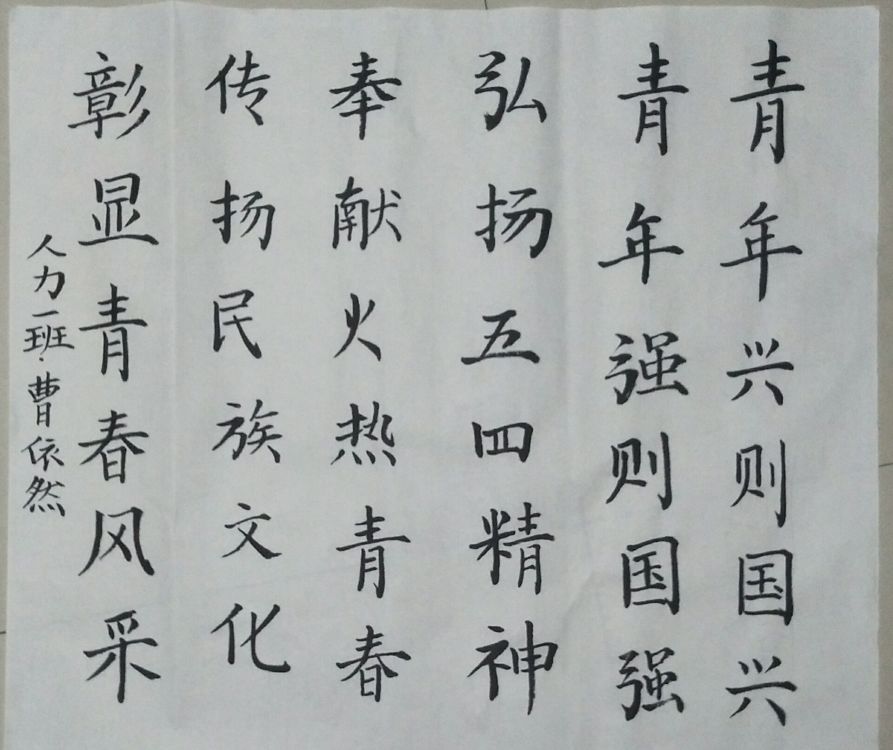 青年兴则国兴
青年强则国强
弘扬五四精神
奉献火热青春
传扬民族文化
彰显青春风采
人力一班·曹依然